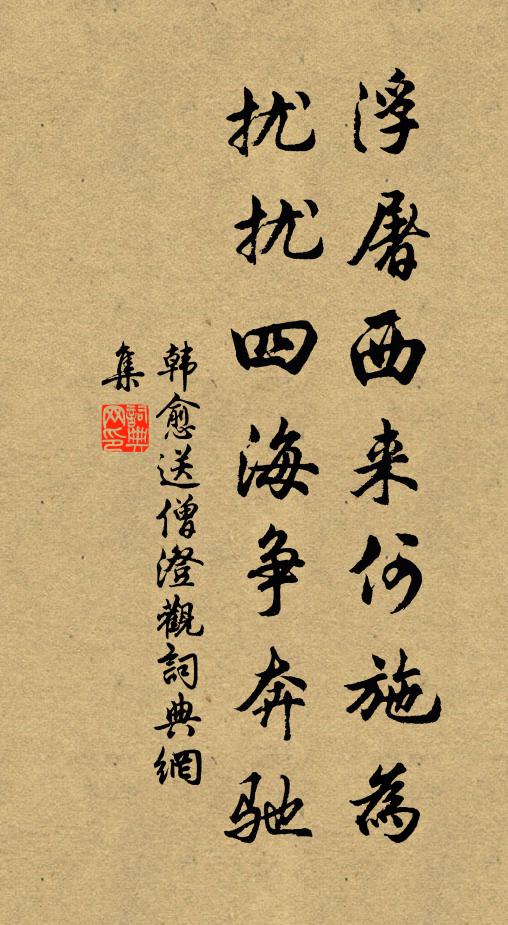 浮屠西来何施為
扰扰四海争奔驰
韩愈送僧澄觀詞典網
集
詞典网印